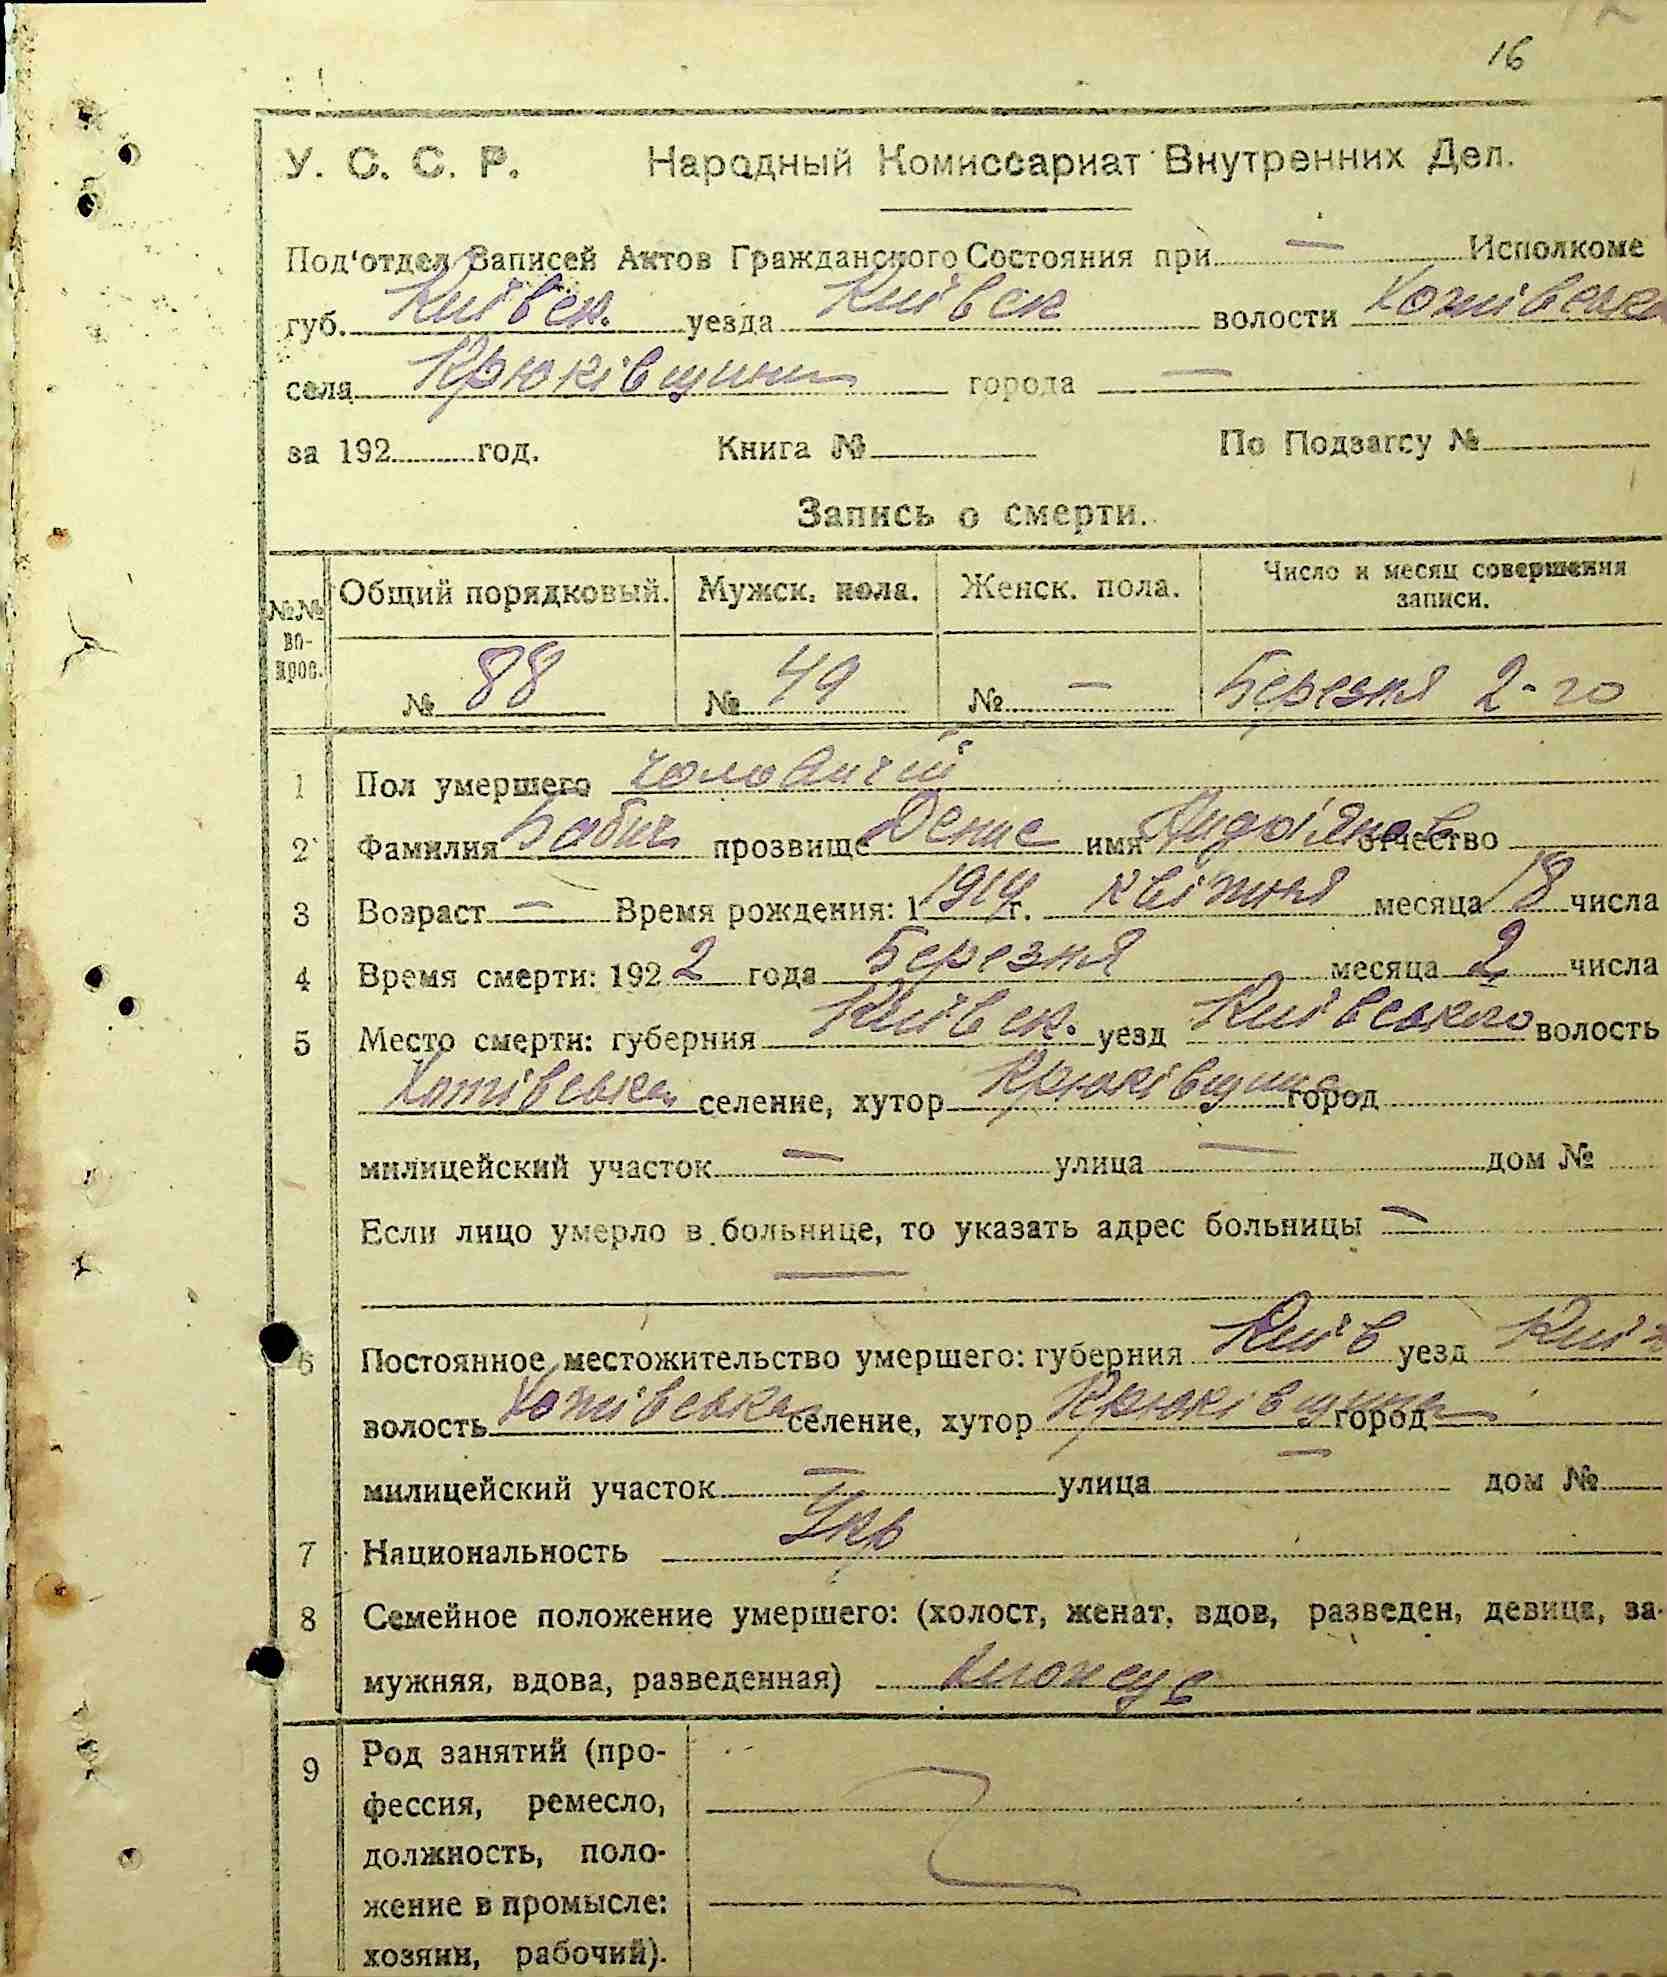 16
У. С. С. Р. Народный Комиссариат Внутренних Дел.
Под'отдел Записей Актов Гражданского Состояния при — Исполкоме
губ. Київск. уезда Київск волости Хотівська
села Крюківщини города —
за 192 год. Книга № По Подзагсу №
Запись о смерти.
№№ вопрос. Общий порядковый. Мужск. пола. Женск. пола. Число и месяц совершения записи.
№ 88 № 49 № — Березня 2-го
1 Пол умершего чоловичий
2 Фамилия Бабич прозвище Денис имя отчество
3 Возраст — Время рождения: 1 1919 г. квітня месяца 18 числа
4 Время смерти: 1922 года Березня месяца 2 числа
5 Место смерти: губерния Київск. уезд Київського волость
Хотівська селение, хутор Крюківщина город
милицейский участок — улица — дом №
Если лицо умерло в больнице, то указать адрес больницы —
—
6 Постоянное местожительство умершего: губерния Київ уезд
волость Хотівська селение, хутор Крюківщина город —
милицейский участок — улица — дом №
7 Национальность Укр
8 Семейное положение умершего: (холост, женат, вдов, разведен, девица, за-
мужняя, вдова, разведенная)
9 Род занятий (про-
фессия, ремесло,
должность, поло-
жение в промысле:
хозяин, рабочий).